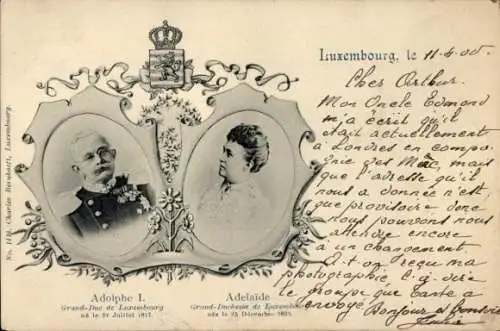 Luxembourg, le 11-4.00
Cher Arthur.
Mon Oncle Edmond
m'a écrit qu'il
était actuellement
à Londres en compa-
gnie des Mac, mais
que l'adresse qu'il
nous a donnée n'est
que provisoire donc
nous pouvons nous
attendre encore
à un changement
A-t-on reçu ma
photographie c.à.dire
le groupe que tante a
envoyé. Bonjour et
Adolphe I.
Grand-Duc de Luxembourg
né le 24 Juillet 1817.
Adelaïde
Grand-Duchesse de Luxembourg
née le 25 Décembre 1833.
Charles Bernhoeft, Luxembourg.